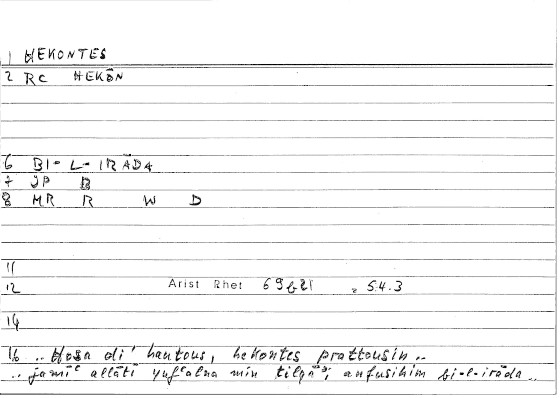 1 HEKONTES
2 RC HEKŌN
6 BI- L- IRĀDA
7 JP B
8 MR R W D
11
12 Arist Rhet 69b21 = 54.3
14
16 .. Hosa di' hautous, hekontes prattousin ..
.. jamīʿ allātī yufʿalna min tilqāʾi anfusihim bi-l-irāda ..